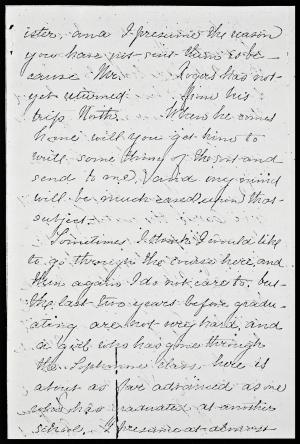 ister, and I presume the reason
you have not sent them is be-
cause Mr. Rogers has not
yet returned from his
trip North. When he comes
home will you get him to
will some thing of the sort and
send to me, and my mind
will be much eased upon that
subject.
Sometimes I think I would like
to go through the course here, and
then again I do not care to, but
the last two years before gradu-
ating are not very hard, and
a girl who has gone through
the Sophomore class, here is
about as far advanced as one
who has graduated at another
school. I presume at almost